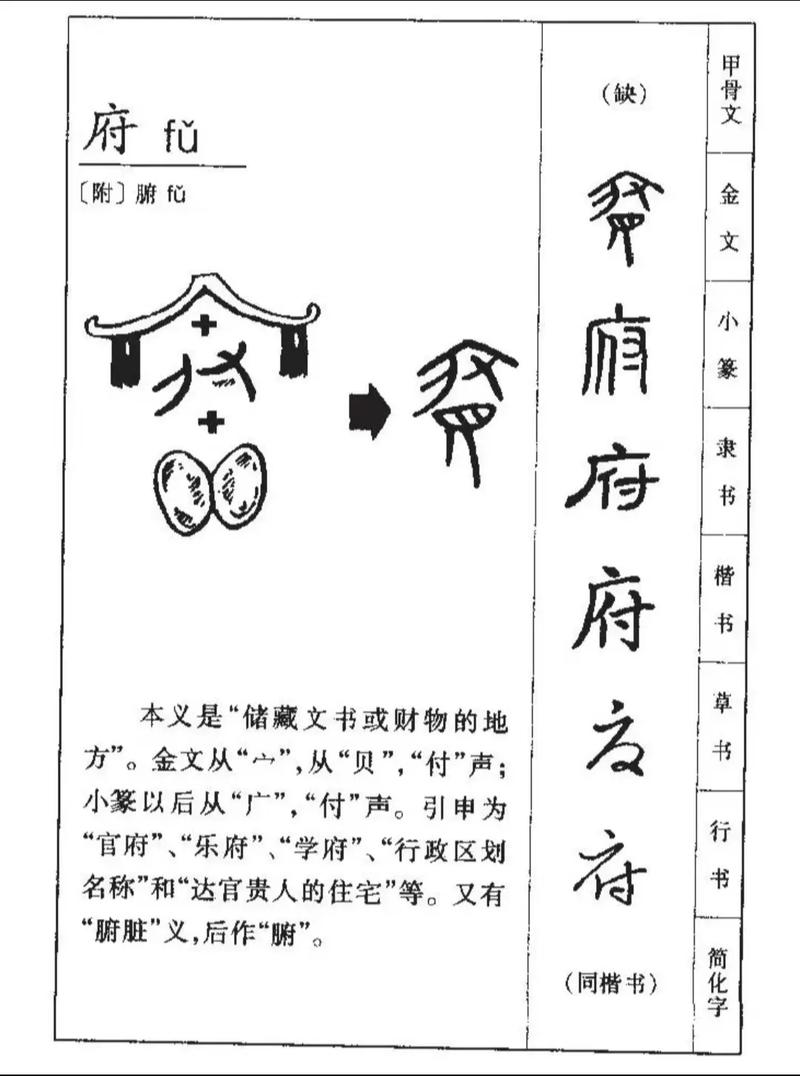 府 fǔ
〔附〕腑 fǔ
本义是“储藏文书或财物的地
方”。金文从“宀”,从“贝”,“付”声;
小篆以后从“广”,“付”声。引申为
“官府”、“乐府”、“学府”、“行政区划
名称”和“达官贵人的住宅”等。又有
“腑脏”义,后作“腑”。
(缺)
甲骨文
府
金文
府
小篆
府
隶书
府
楷书
府
草书
府
行书
(同楷书)
简化字